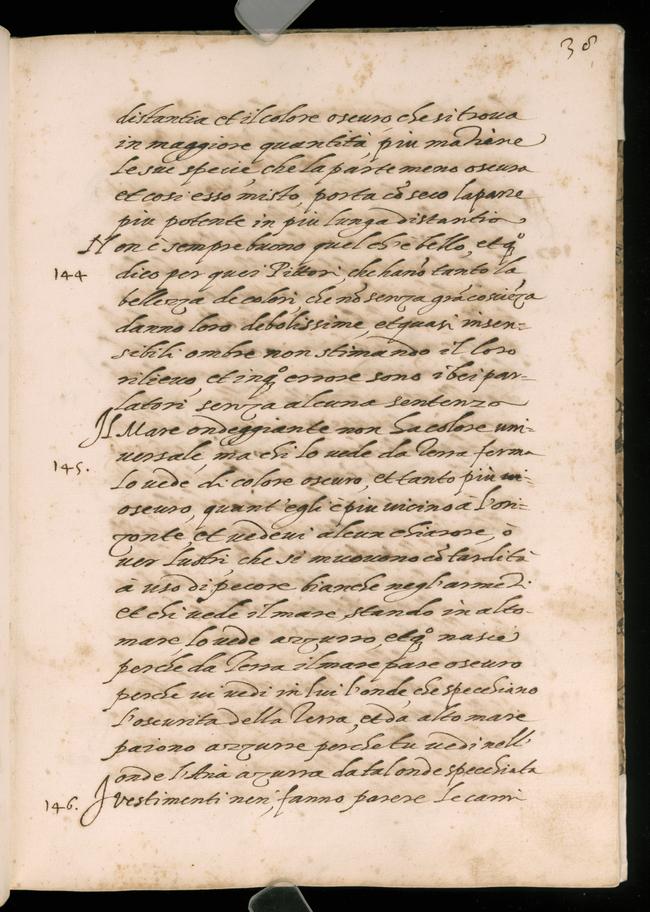 38
distantia et il colore oscuro, che si troua
in maggiore quantità, piu mantiene
le sue specie, che la parte meno oscura
et cosi esso misto, porta cõ seco la parte
piu potente in piu lunga distantia
Non è sempre buono quel ch'e bello, et q̃º
144
dico per quei Pittori, che hanõ tanto la
bellezza de colori, che nõ senza grã
danno loro debolissime, et quasi insen-
sibili ombre non stimando il loro
rilieuo, et in q̃º errore sono i bei par-
latori senza alcuna sentenza
Il Mare ondeggiante non ha colore uni-
145.
uersale, ma chi lo uede da Terra ferma
lo uede di colore oscuro, et tanto piu
oscuro, quant'egli è piu uicino à l'ori-
zonte, et uedeui alcun chiarore, ò
uer lustri, che si muouono cõ tardità
à uso di pecore bianche negl'armẽti
et chi uede il mare, stando in alto
mare, lo uede azzurro, et q̃º nasce
perche da Terra il mare pare oscuro
perche ui uedi in lui l'onde, che specchiano
l'oscurita della Terra, et da alto mare
paiono azzurre perche tu uedi nell'
onde l'Aria azurra da tal onde specchiata
146. I vestimenti neri, fanno parere le carni